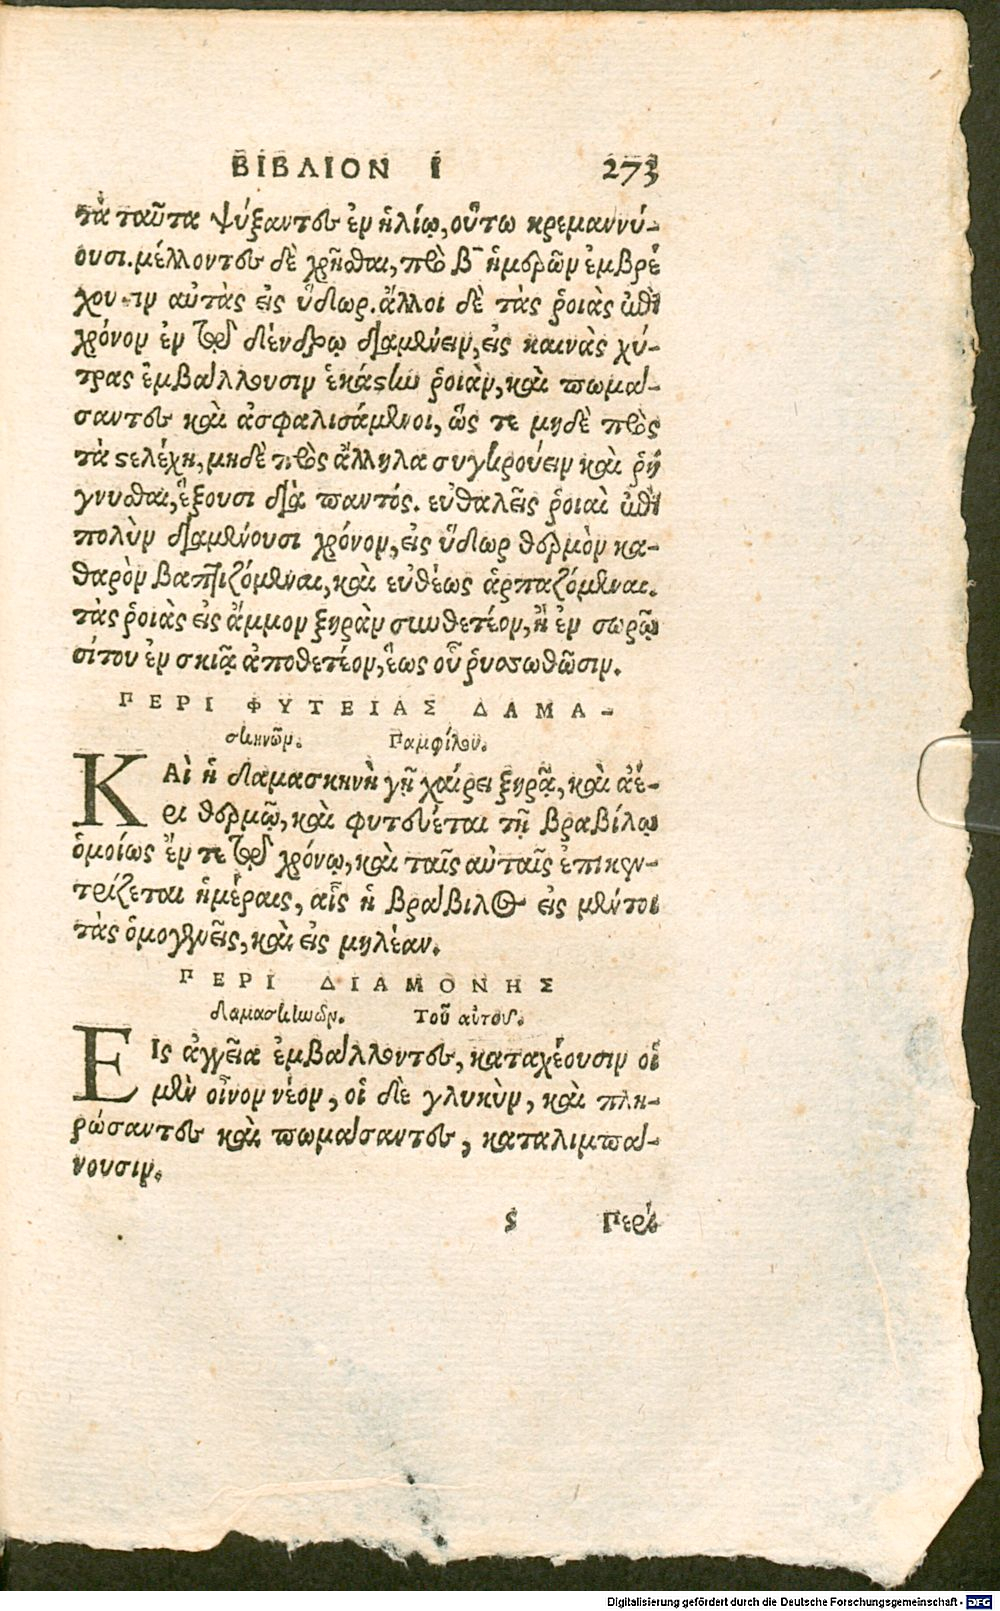 ΒΙΒΛΙΟΝ Ι 273
τὰ ταῦτα ψύξαντες ἐν ἡλίῳ, οὕτω κρεμαννύ-
ουσι. μέλλοντες δὲ χρῆσθαι, πρὸ β̄ ἡμερῶν ἐμβρέ
χουσιν αὐτὰς εἰς ὕδωρ. ἄλλοι δὲ τὰς ῥοιὰς ἐπὶ
χρόνον ἐν τῷ δένδρῳ διαμένειν, εἰς καινὰς χύ-
τρας ἐμβάλλουσιν ἑκάστην ῥοιὰν, καὶ πωμά-
σαντες καὶ ἀσφαλισάμενοι, ὥς τε μηδὲ πρὸς
τὰ στελέχη, μηδὲ πρὸς ἄλληλα συγκρούειν καὶ ῥή
γνυσθαι, ἕξουσι διὰ παντός. εὐθαλεῖς ῥοιαὶ ἐπὶ
πολὺν διαμένουσι χρόνον, εἰς ὕδωρ θερμὸν κα-
θαρὸν βαπτιζόμεναι, καὶ εὐθέως ἁρπαζόμεναι.
τὰς ῥοιὰς εἰς ἄμμον ξηρὰν συνθετέον, ἢ ἐν σωρῷ
σίτου ἐν σκιᾷ ἀποθετέον, ἕως οὗ ῥυσωθῶσιν.
ΠΕΡΙ ΦΥΤΕΙΑΣ ΔΑΜΑ-
σκηνῶν. Παμφίλου.
ΚΑὶ ἡ δαμασκηνὴ γῇ χαίρει ξηρᾷ, καὶ ἀέ-
ρι θερμῷ, καὶ φυτεύεται τῇ βραβίλῳ
ὁμοίως ἔν τε τῷ χρόνῳ, καὶ ταῖς αὐταῖς ἐπικεν-
τρίζεται ἡμέραις, αἷς ἡ βράβιλος εἰς μέντοι
τὰς ὁμογενεῖς, καὶ εἰς μηλέαν.
ΠΕΡΙ ΔΙΑΜΟΝΗΣ
δαμασκηνῶν. Τοῦ αὐτοῦ.
ΕΙς ἀγγεῖα ἐμβάλλοντες, καταχέουσιν οἱ
μὲν οἶνον νέον, οἱ δὲ γλυκὺν, καὶ πλη-
ρώσαντες καὶ πωμάσαντες, καταλιμπά-
νουσιν.
S Περὶ
Digitalisierung gefördert durch die Deutsche Forschungsgemeinschaft - DFG